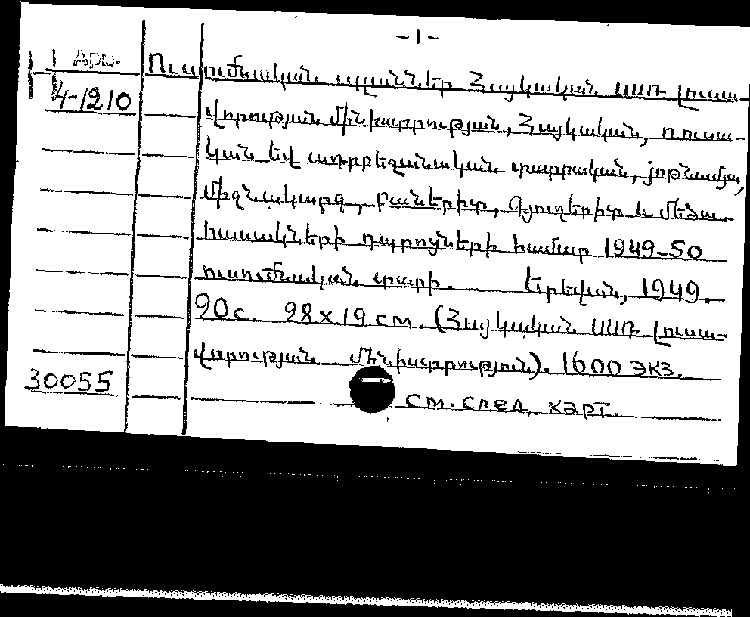 -1-
Ուսումնական պլաններ Հայկական ՍՍՌ լուսա-
4-1210
վորության մինիստրության, Հայկական, ռուսա-
կան և ադրբեջանական տարրական, յոթնամյա,
միջնակարգ, բաներիտ, գյուղերիտ և մեծա-
հասակների դպրոցների համար 1949-50
ուսումնական տարի. Երևան, 1949.
90с. 28х19 см. (Հայկական ՍՍՌ լուսա-
վորության մինիստրություն). 1600 экз.
30055
см. след. карт.